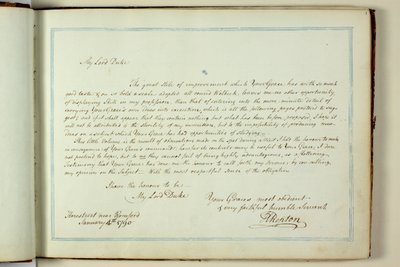 My Lord Duke
The great stile of improvement which Your Grace has with so much
good taste & on so bold a scale, adopted all round Welbeck, leaves me no other opportunity
of displaying Skill in my profession, than that of entering into the more minute detail of
carrying Your Grace's own ideas into execution, which is all the following pages pretend to sug-
gest; and if it shall appear that they contain nothing but what has been before proposed, I hope it
will not be attributed to the sterility of my invention, but to the impossibility of producing new
ideas on a subject which Your Grace has had opportunities of studying.
This little Volume is the result of observations made on the spot during a visit I had the honour to make
in consequence of Your Grace's commands; how far its contents may be useful to Your Grace, I dare
not pretend to hope, but to me they cannot fail of being highly advantageous, as a flattering
testimony that Your Grace has done me the honour to call forth my Services, by consulting
my opinion on the Subject. With the most respectful sense of the obligation
I have the honour to be
My Lord Duke
Your Grace's most obedient
& very faithful humble Servant
H Repton
Harestreet near Romford
January 4th 1790